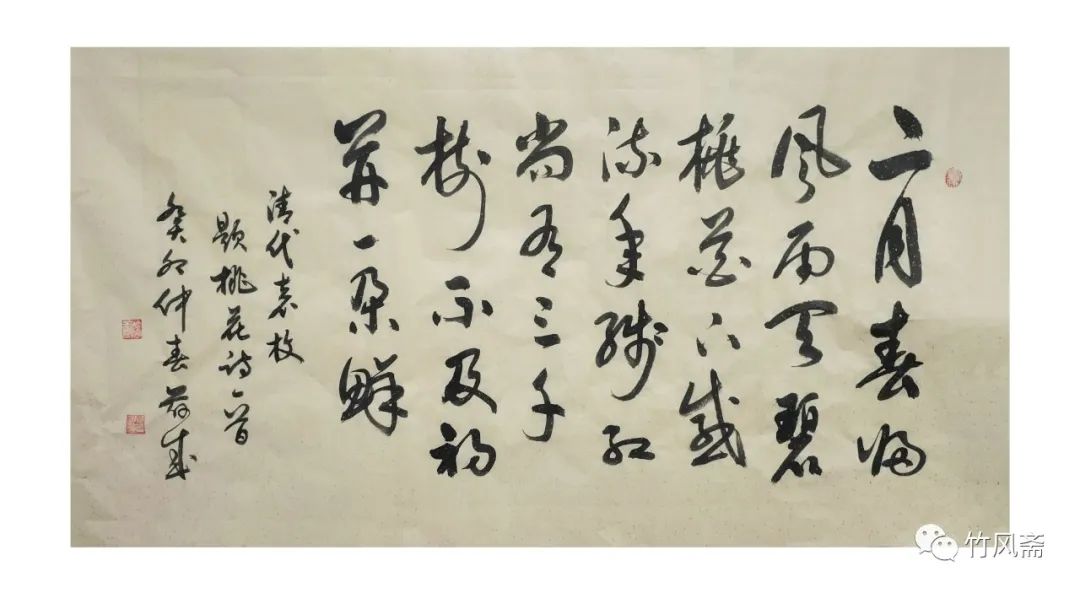 二月春归
风雨天碧
桃花下感
流年残红
尚有三千
树不及初
开一朵鲜
清代袁枚
题桃花诗一首
癸卯仲春
竹风斋